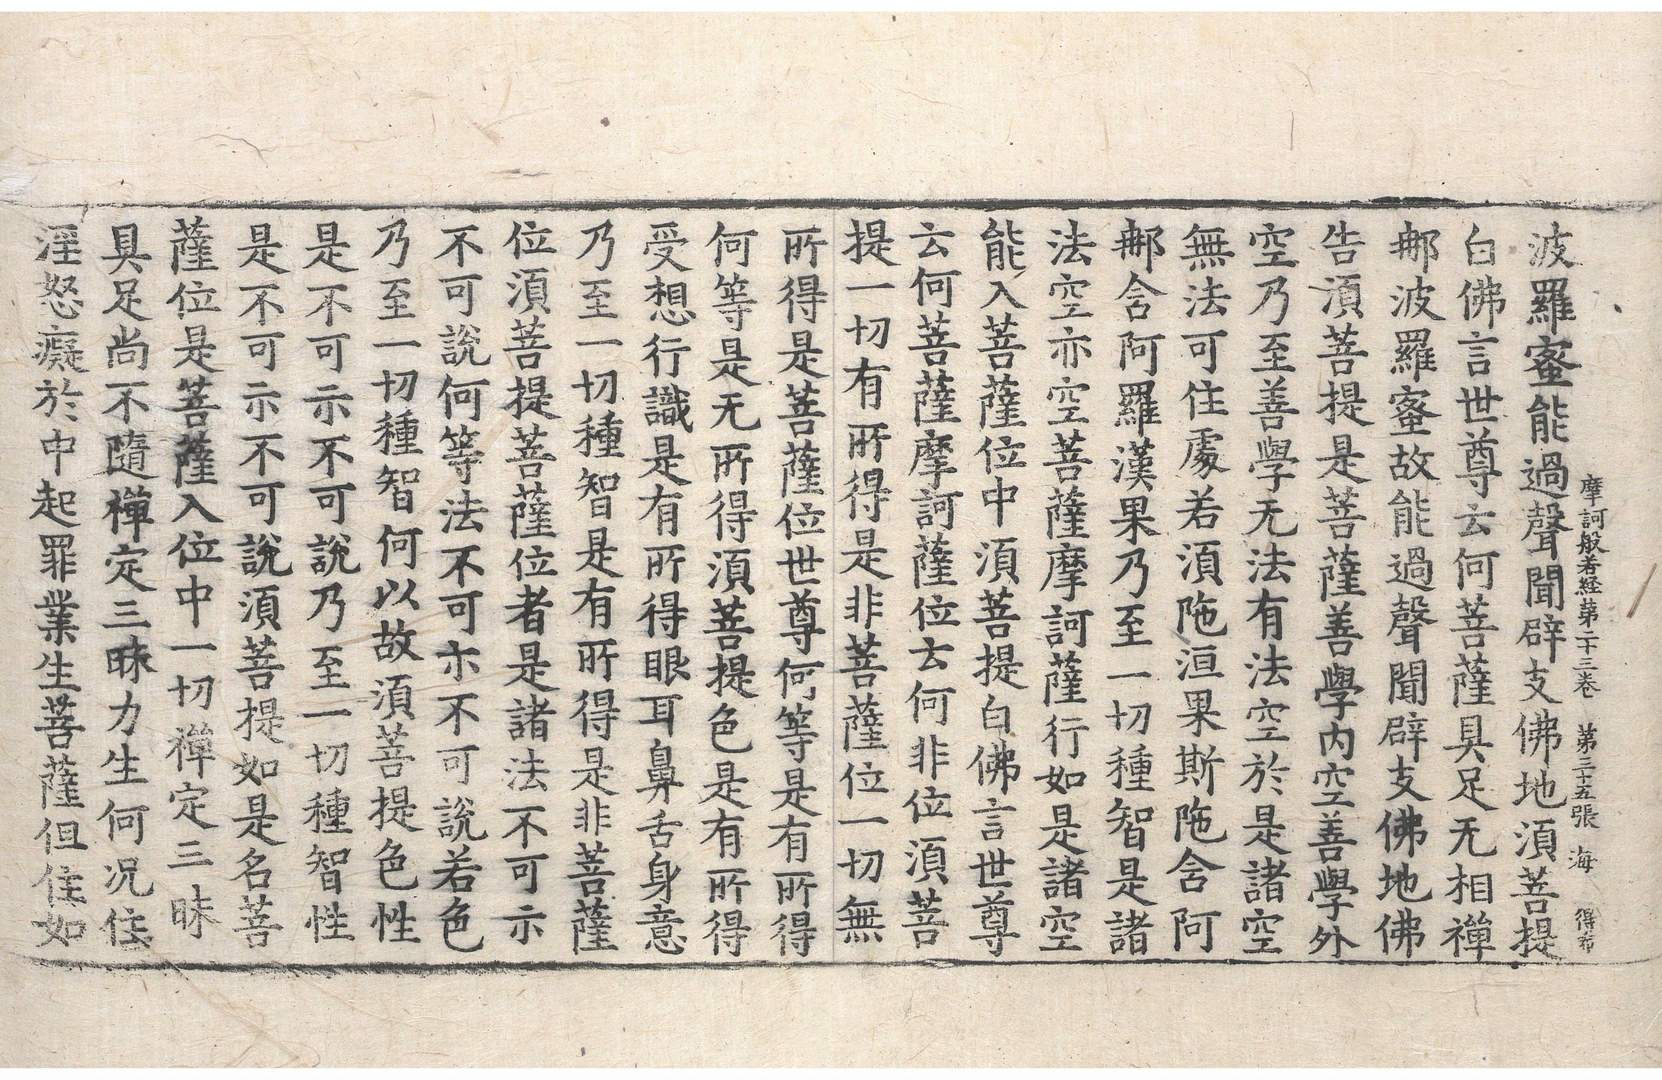 摩訶般若經第二十三卷　第三十五張　海　得布
波羅蜜能過聲聞辟支佛地湏菩提
白佛言世尊云何菩薩具足无相禪
那波羅蜜故能過聲聞辟支佛地佛
告湏菩提是菩薩善學內空善學外
空乃至善學无法有法空於是諸空
無法可住處若湏陁洹果斯陁含阿
那含阿羅漢果乃至一切種智是諸
法空亦空菩薩摩訶薩行如是諸空
能入菩薩位中湏菩提白佛言世尊
云何菩薩摩訶薩位云何非位湏菩
提一切有所得是非菩薩位一切無
所得是菩薩位世尊何等是有所得
何等是无所得湏菩提色是有所得
受想行識是有所得眼耳鼻舌身意
乃至一切種智是有所得是非菩薩
位湏菩提菩薩位者是諸法不可示
不可說何等法不可示不可說若色
乃至一切種智何以故湏菩提色性
是不可示不可說乃至一切種智性
是不可示不可說湏菩提如是名菩
薩位是菩薩入位中一切禪定三昧
具足尚不隨禪定三昧力生何況住
淫怒癡於中起罪業生菩薩但住如